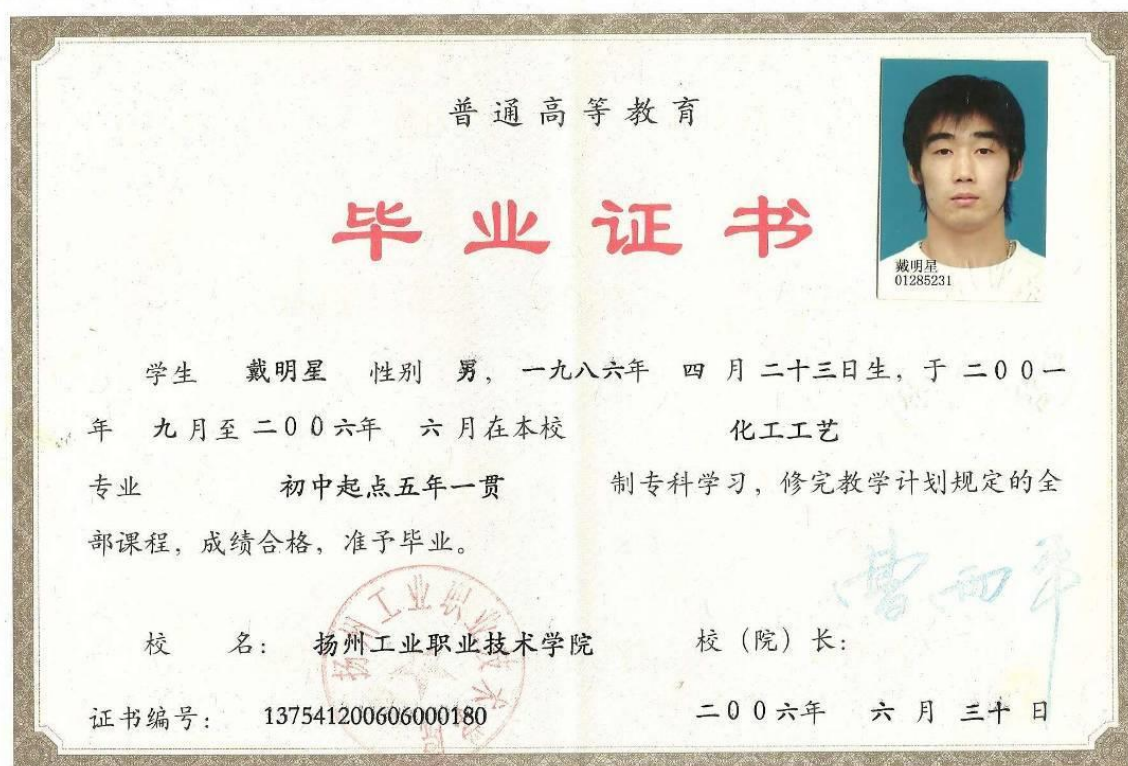 普通高等教育
毕业证书
戴明星
01285231
学生 戴明星 性别 男，一九八六年 四 月 二十三日生，于 二00一
年 九 月至 二00六年 六 月在本校 化工工艺
专业 初中起点五年一贯 制专科学习，修完教学计划规定的全
部课程，成绩合格，准予毕业。
曹雨平
校 名： 扬州工业职业技术学院 校（院）长：
扬州工业职业技术学院
证书编号： 137541200606000180 二00六年 六 月 三十 日